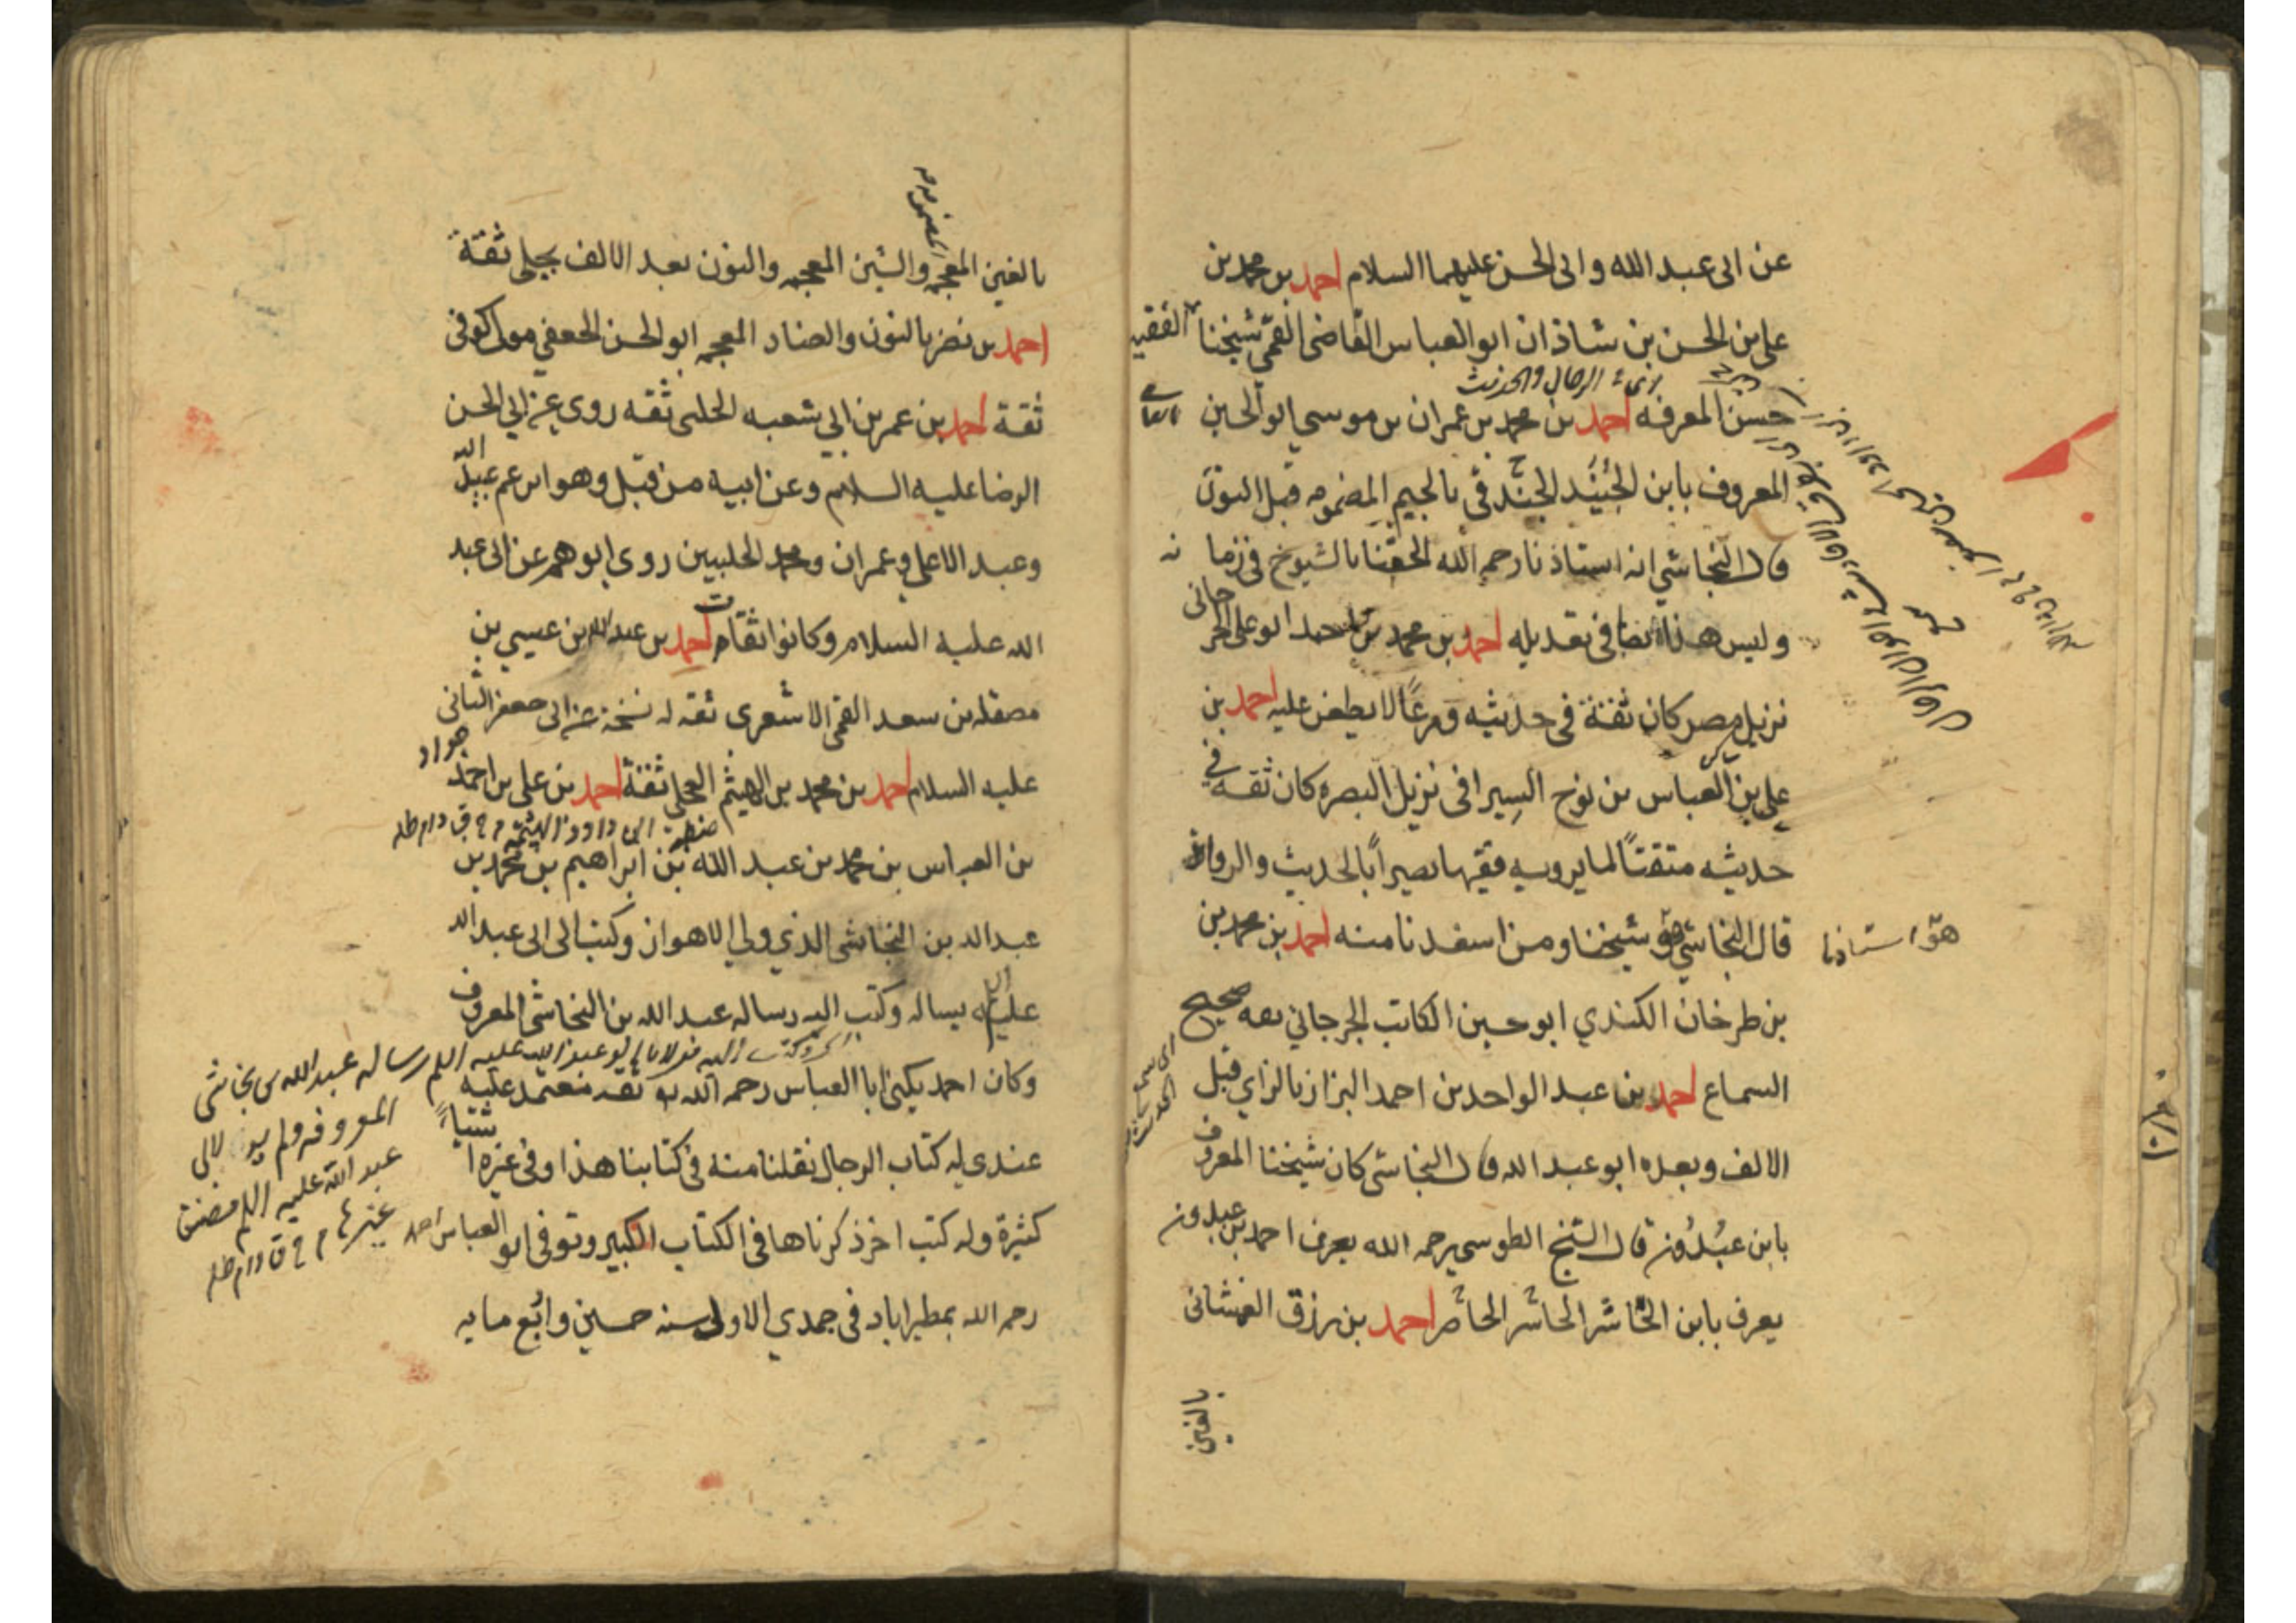 عن ابى عبد الله وابى الحسن عليهما السلام احمد بن محمد بن
على بن الحسن بن شاذان ابو العباس القاضى القمى شيخنا الفقيه
حسن المعرفه احمد بن محمد بن عمران بن موسى ابو الحسين
المعروف بابن الجُنَيد الجندى بالجيم المضمومه قبل النون
قال النجاشي انه استاذنا رحمه الله الحقنا بالشيوخ فى زما نه
وليس هذا ايضا فى تعديله احمد بن محمد بن احمد ابو على الجرجانى
نزيل مصر كان ثقة فى حديثه ورعًا لا يطعن عليه احمد بن
على بن العباس بن نوح السيرافى نزيل البصره كان ثقه فى
حديثه متقنًا لما يرويه فقيها بصيرًا بالحديث والروايه
قال النجاشي هو شيخنا ومن استفدنا منه احمد بن محمد بن
هو استاذنا
بن طرخان الكندي ابو حسين الكاتب الجرجاني ثقه صحيح
السماع احمد بن عبد الواحد بن احمد البزاز بالزاي قبل
الالف وبعده ابو عبد الله قال النجاشى كان شيخنا المعروف
بابن عبُدُون قال الشيخ الطوسى رحمه الله يعرف احمد بن عبدون
يعرف بابن الحاشر الحاشر احمد بن رزق الغمشانى
بالغين
بالغين المعجمه والشين المعجمه والنون بعد الالف بجلى ثقة
المضمومه
احمد بن نضر بالنون والضاد المعجمه ابو الحسن الجعفي مولى كوفى
ثقة احمد بن عمر بن ابي شعبه الحلبى ثقه روى عن ابي الحسن
الرضا عليه السلام وعن ابيه من قبل وهو ابن عم عبيد الله
وعبد الاعلى وعمران ومحمد الحلبيين روى ابوهم عن ابى عبد
الله عليه السلام وكانوا ثقات احمد بن عبد الله بن عيسى بن
مصقله بن سعد القمى الاشعرى ثقه له نسخة عن ابى جعفر الثانى
عليه السلام احمد بن محمد بن الهيثم العجلى ثقة احمد بن على بن احمد
بن العباس بن محمد بن عبد الله بن ابراهيم بن محمد بن
عبد الله بن النجاشى الذي ولي الاهواز وكتب الى ابى عبد الله
عليه السلام يساله وكتب اليه رساله عبد الله بن النجاشى المعروف
وكان احمد يكنى ابا العباس رحمه الله ثقه معتمد عليه
عندي له كتاب الرجال نقلنا منه فى كتابنا هذا وفى غيره اشياءً
كثيرة وله كتب اخر ذكرناها فى الكتاب الكبير وتوفى ابو العباس احمد
رحمه الله بمطيراباد فى جمدي الاولى سنه خمسين واربع مايه
رساله عبد الله بن نجاشى
المعروفه ولم ير لابى
عبد الله عليه السلام مصنف
غيره